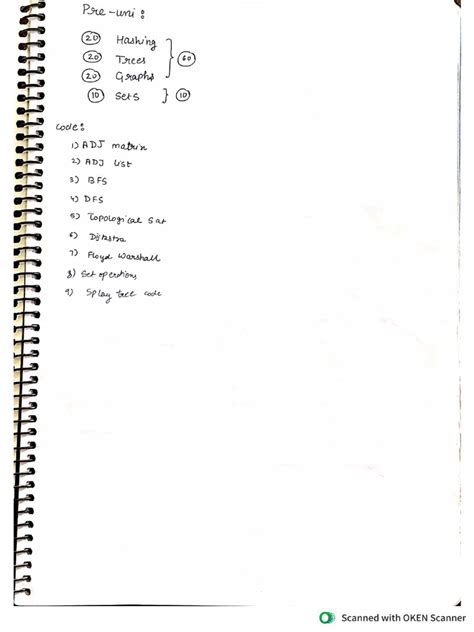 Pre-uni :
20 Hashing
20 Trees
20 Graphs } 60
10 Sets } 10
Code :
1) ADJ matrix
2) ADJ list
3) BFS
4) DFS
5) Topological Sort
6) Dijkstra
7) Floyd Warshall
8) Set operations
9) Splay tree code
Scanned with OKEN Scanner